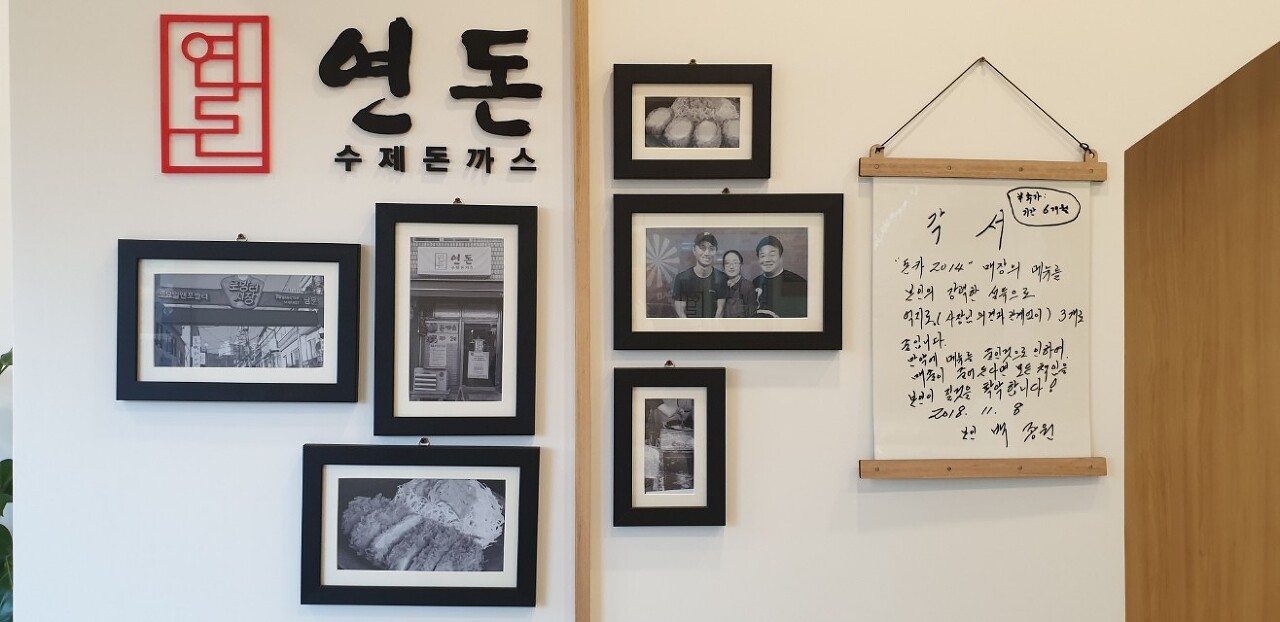 연돈
연돈
수제돈까스
포방터
시장
연돈
수제돈까스
각서
부칙:
기간 6개월
"돈카 2014" 매장의 메뉴를
본인의 강력한 설득으로
억지로, (사장님 의견과 관계없이) 3개로
줄입니다.
만약에 메뉴를 줄인것으로 인하여,
매출이 줄어든다면 모든 책임을
본인이 질것을 확약합니다!
2018. 11. 8
본인 백종원